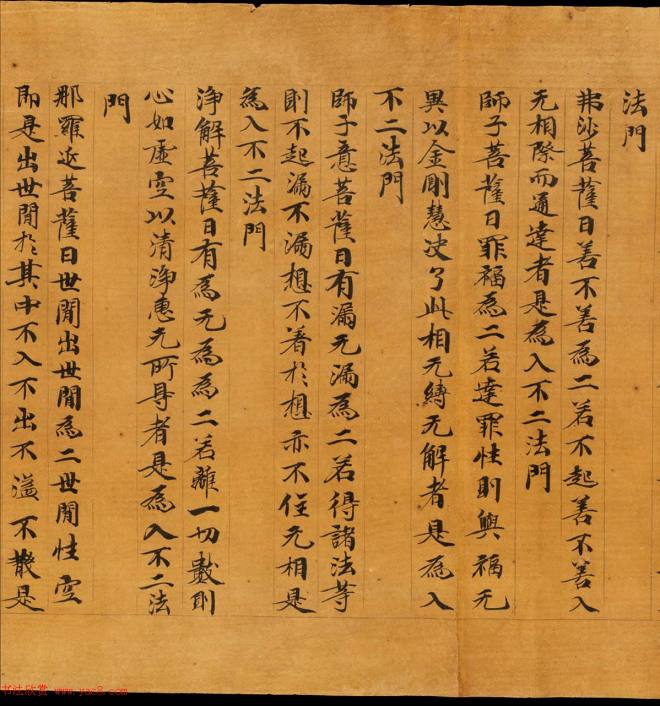 法門
弗沙菩薩曰善不善為二若不起善不善入
无相際而通達者是為入不二法門
師子菩薩曰罪福為二若達罪性則與福无
異以金剛慧決了此相无縛无解者是為入
不二法門
師子意菩薩曰有漏无漏為二若得諸法等
則不起漏不漏想不著於想亦不住无相是
為入不二法門
淨解菩薩曰有為无為為二若離一切數則
心如虛空以清淨惠无所㝵者是為入不二法
門
那羅延菩薩曰世間出世間為二世間性空
即是出世間於其中不入不出不溢不散是
书法欣赏 www.yac8.com